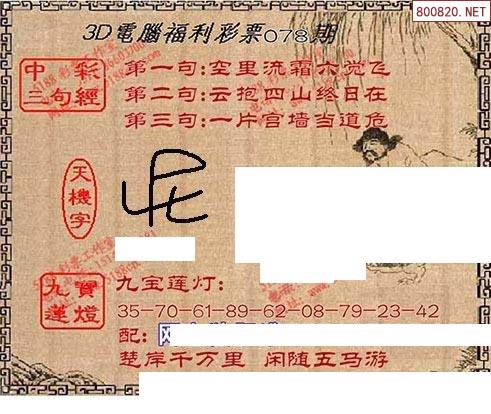 800820.NET
3D電腦福利彩票078期
中彩
三句經
第一句:空里流霜不觉飞
第二句:云抱四山终日在
第三句:一片宫墙当道危
天機字
九寶蓮燈
九宝莲灯:
35-70-61-89-62-08-79-23-42
配:
楚岸千万里 闲随五马游